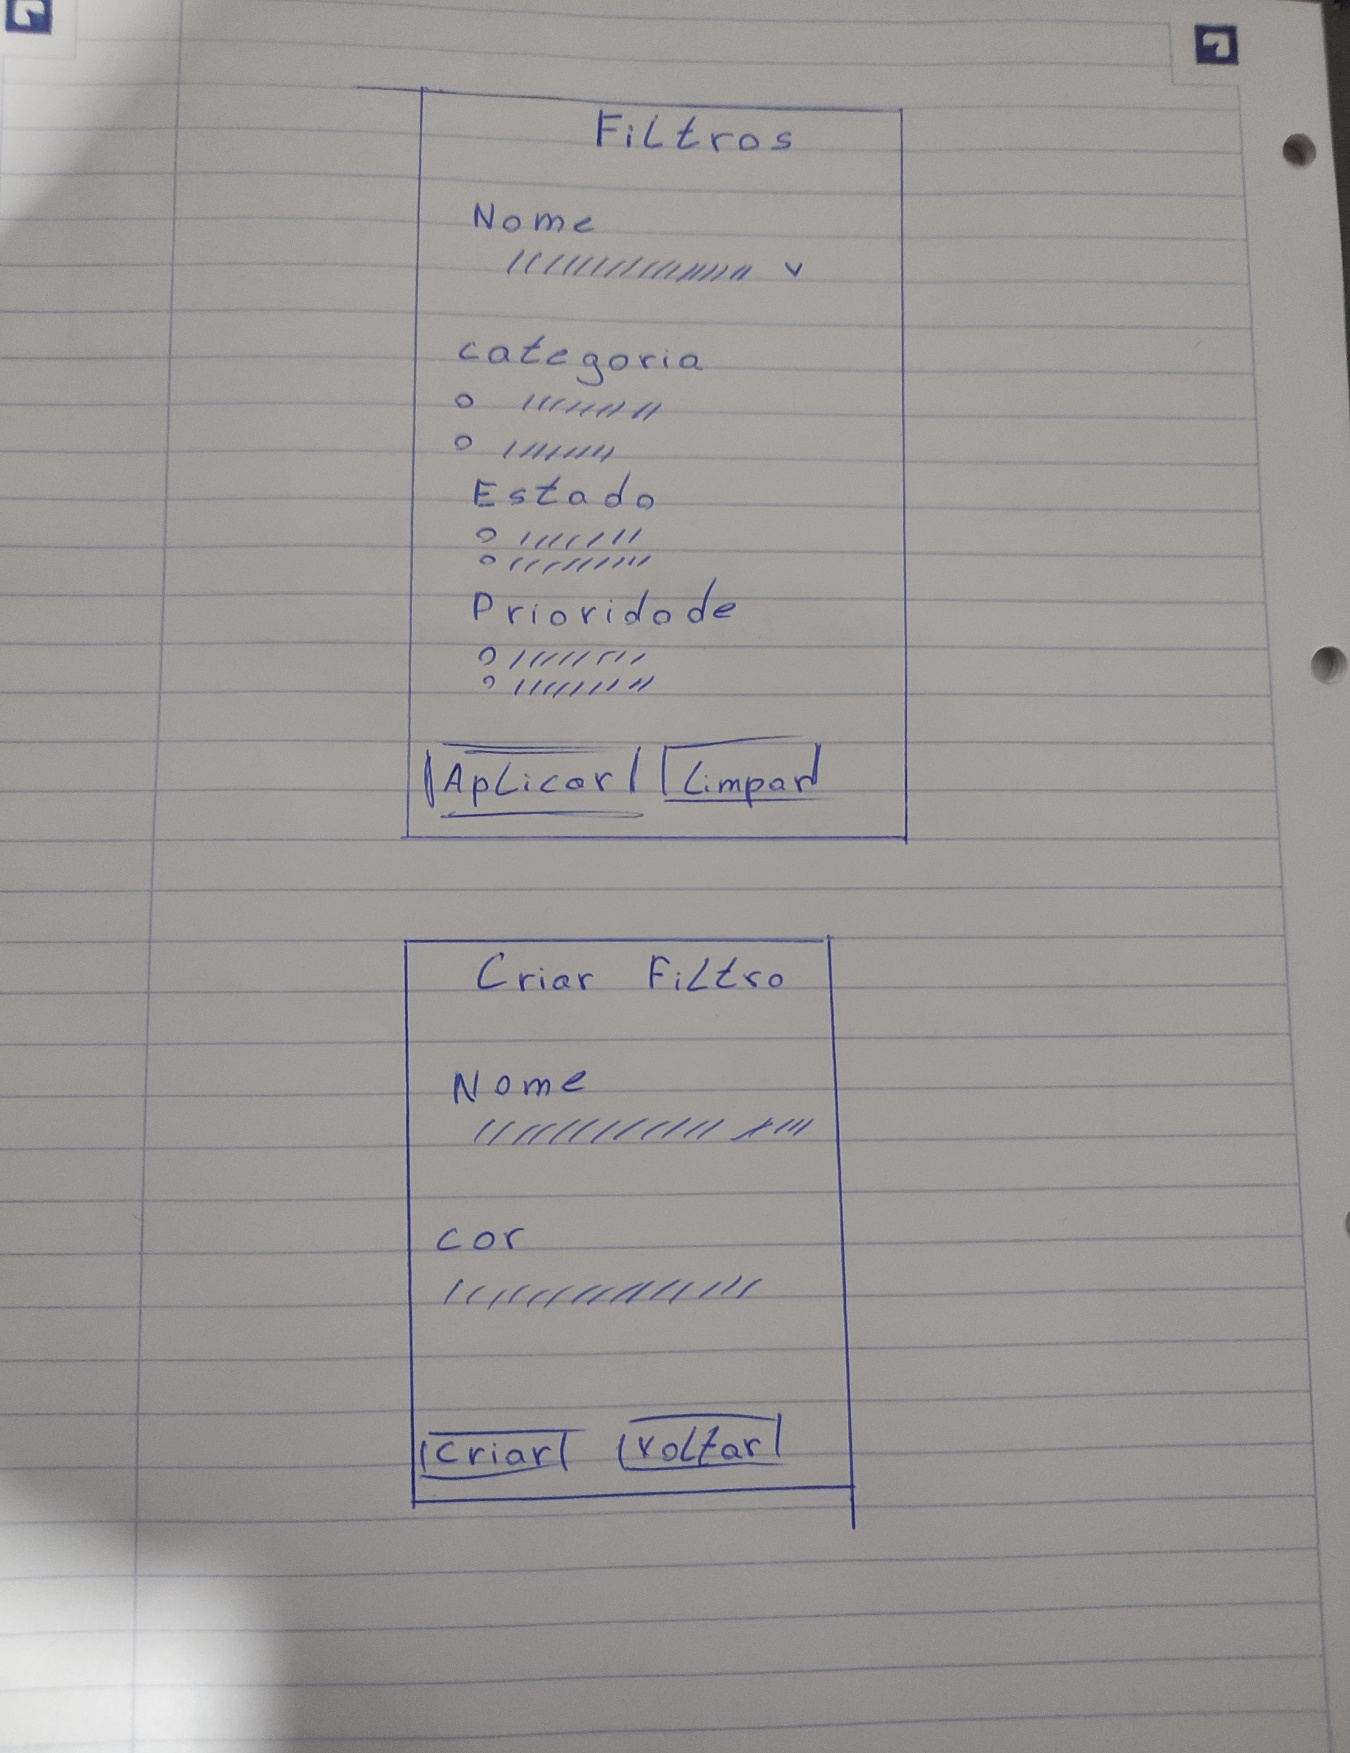 Filtros
Nome
categoria
Estado
Prioridade
Aplicar Limpar
Criar Filtro
Nome
cor
criar voltar